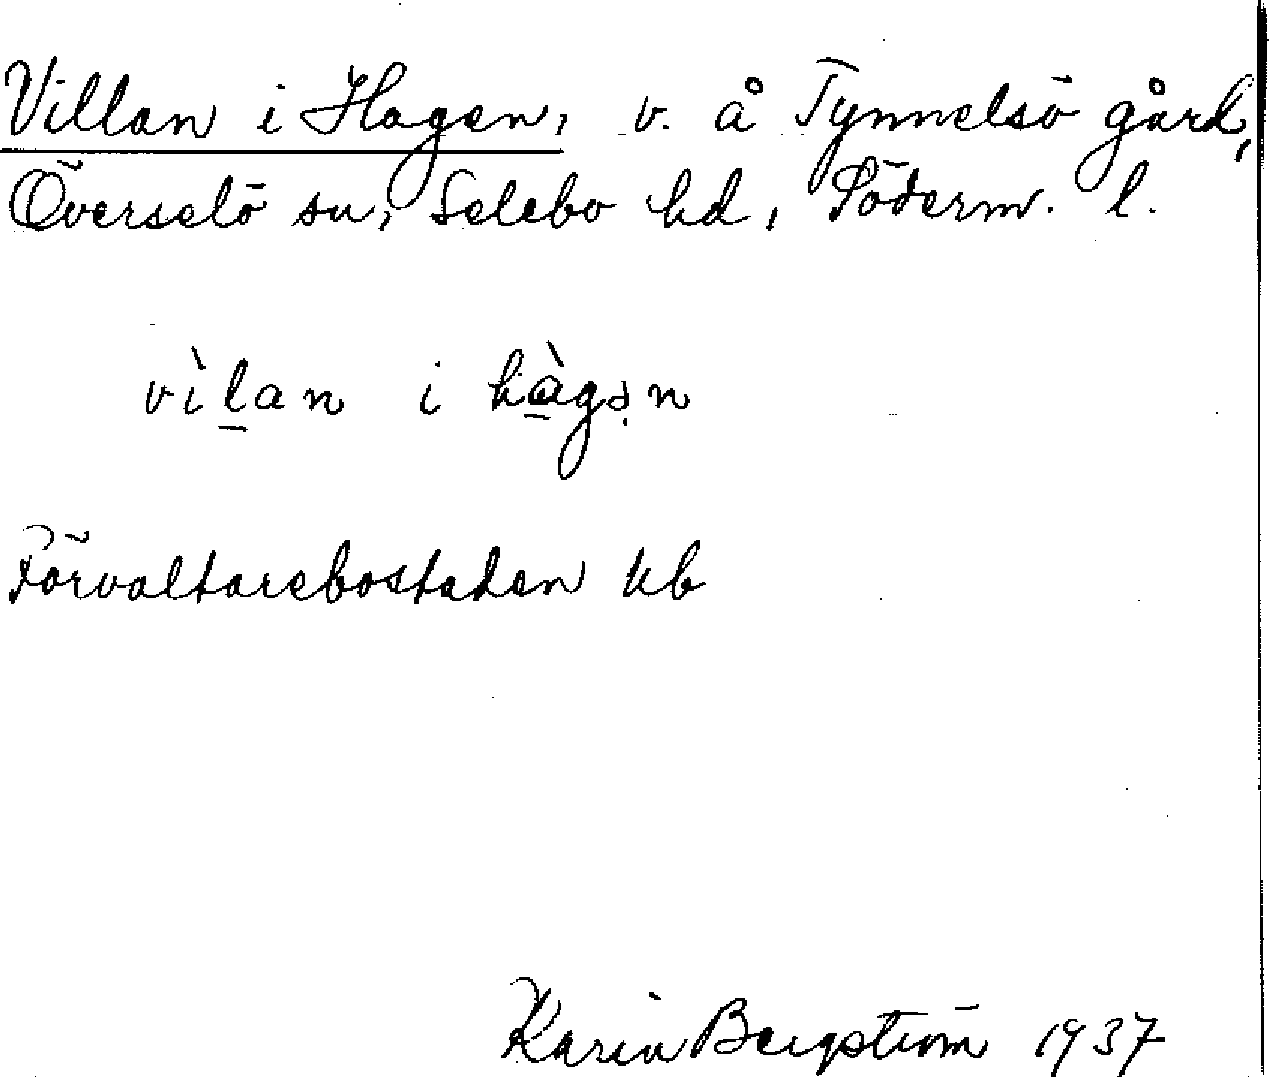 Villan i Hagen, v. å Tynnelsö gård,
Överselö sn, Selebo hd, Söderm. l.
vìlan i hàgən
Förvaltarebostaden kb
Karin Bergström 1937